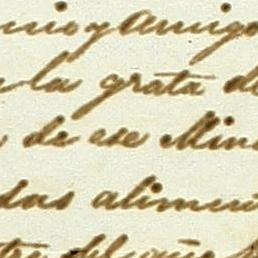 mio y amigo
la grata d
de ese Min
das alimen
del año